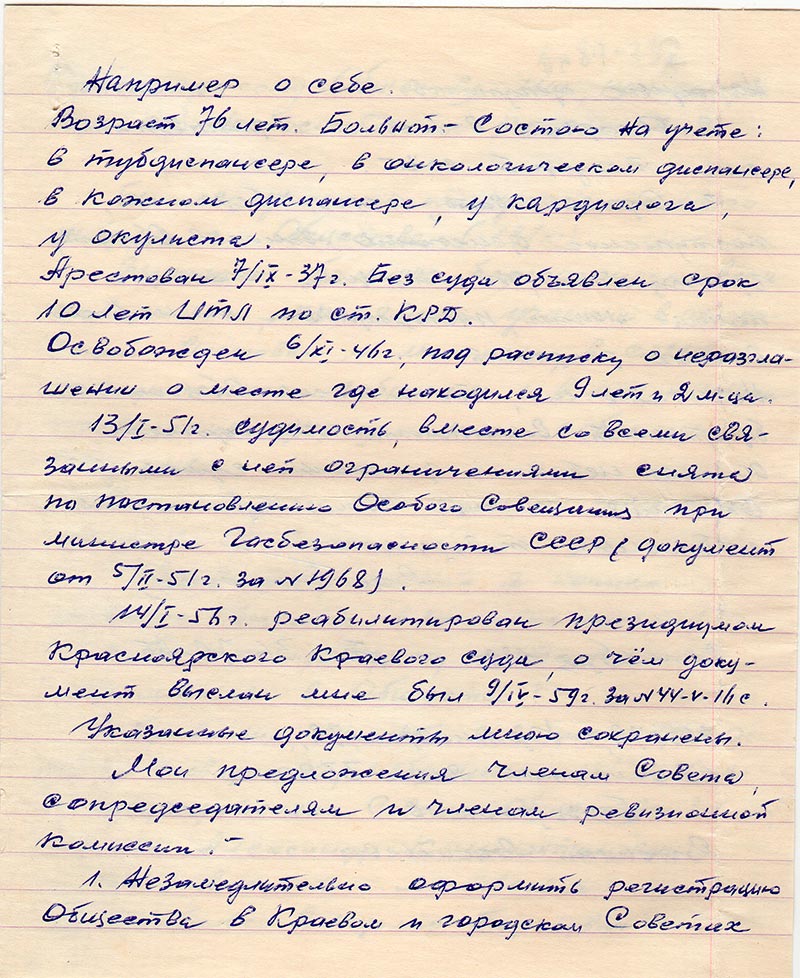 Например о себе.
Возраст 76 лет. Больной – Состою на учете:
в тубдиспансере, в онкологическом диспансере,
в кожном диспансере, у кардиолога,
у окулиста.
Арестован 7/IX-37г. Без суда объявлен срок
10 лет ИТЛ по ст. КРД.
Освобожден 6/XI-46г., под расписку о неразгла-
шении о месте где находился 9 лет и 2 м-ца.
13/I-51г. судимость, вместе со всеми свя-
занными с ней ограничениями снята
по постановлению Особого Совещания при
министре Госбезопасности СССР (документ
от 5/II-51г. за N 1968).
14/I-56г. реабилитирован президиумом
Красноярского Краевого суда, о чём доку-
мент выслан мне был 9/IV-59г. за N 44-
Указанные документы мною сохранены.
Мои предложения членам Совета,
сопредседателям и членам ревизионной
комиссии: –
1. Незамедлительно оформить регистрацию
Общества в Краевом и городском Советах